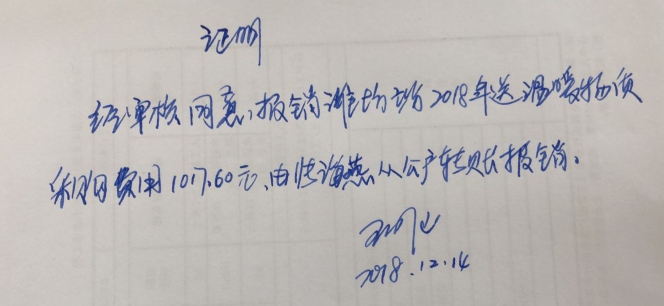 证明
经审核同意报销潍坊坊2018年送温暖物资
采购费用1017.60元,由海燕从公户转账报销。
2018.12.14